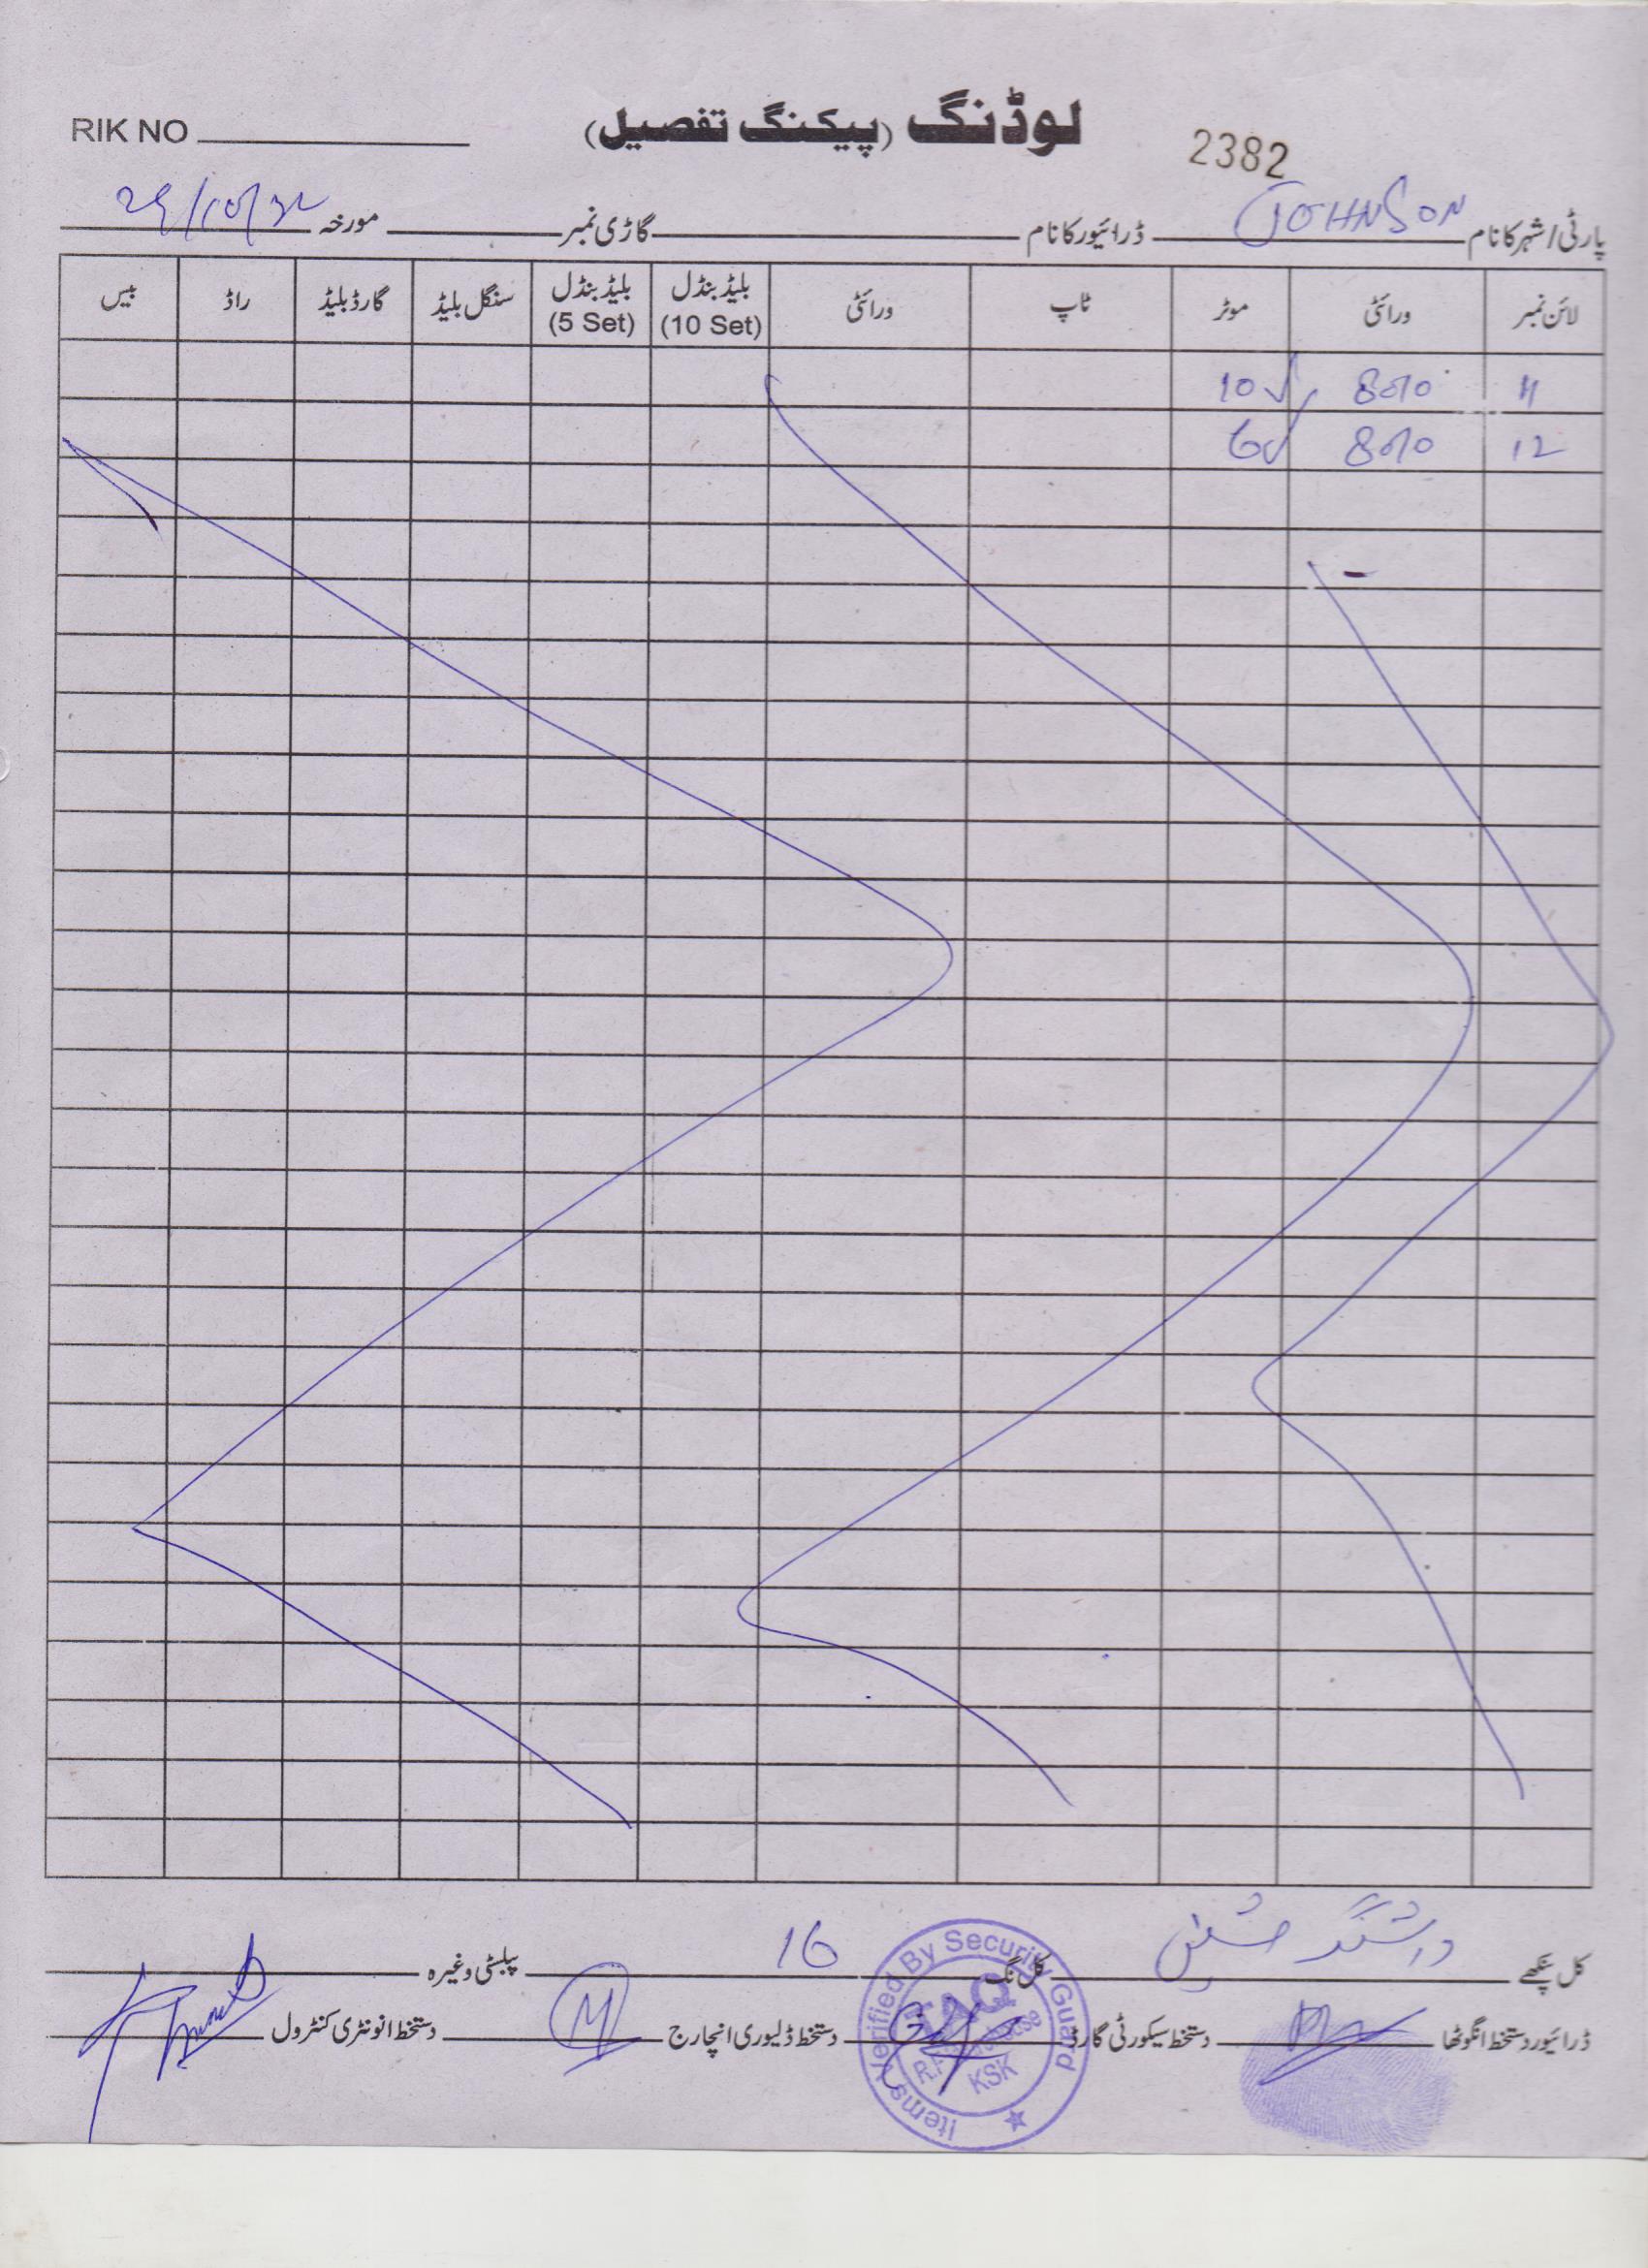 RIK NO لوڈنگ (پیکنگ تفصیل) 2382
پارٹی/شہر کا نام JOHNSON ڈرائیور کا نام گاڑی نمبر مورخہ
لائن نمبر ورائٹی موٹر ٹاپ ورائٹی بلیڈ بنڈل (10 Set) بلیڈ بنڈل (5 Set) سنگل بلیڈ گارڈ بلیڈ راڈ بیس
11 10
12 6
کل پنکھے واشنگ مشین کل نگ 16 پبلسٹی وغیرہ
ڈرائیور دستخط انگوٹھا دستخط سیکورٹی گارڈ دستخط ڈلیوری انچارج دستخط انونٹری کنٹرول
Items Verified By Security Guard
KSK